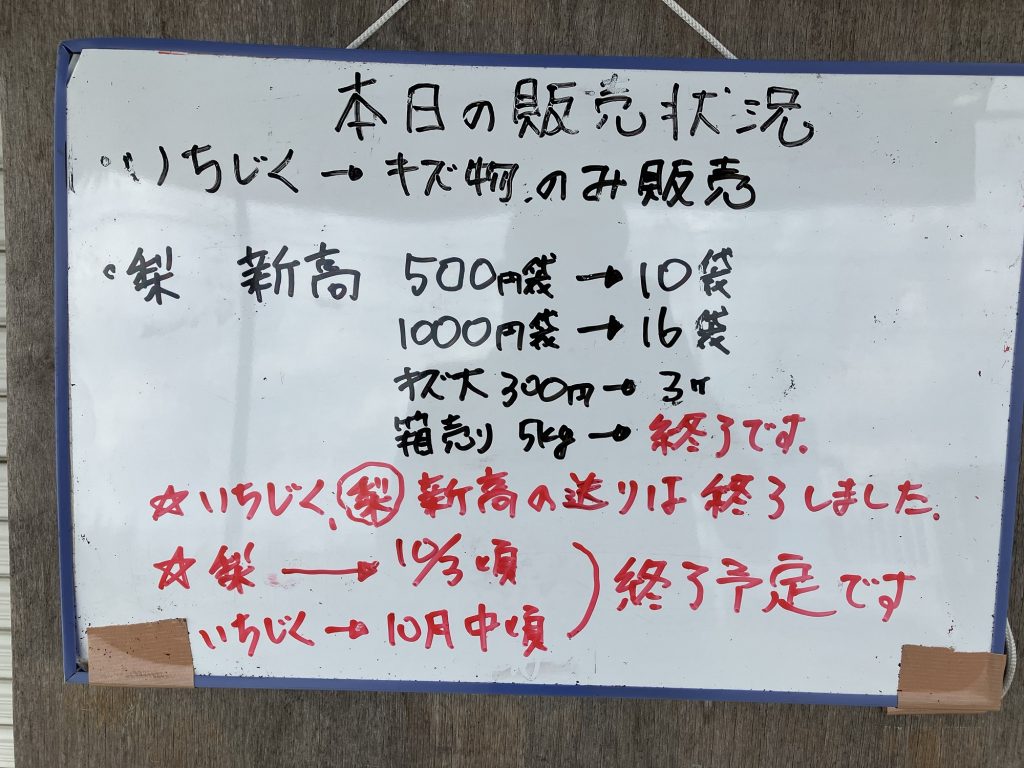 本日の販売状況
・いちじく→キズ物のみ販売
・梨 新高 500円袋→10袋
1000円袋→16袋
キズ大300円→3ケ
箱売り 5kg→終了です。
☆いちじく、梨 新高の送りは終了しました。
☆梨→10/3頃
いちじく→10月中頃
)終了予定です